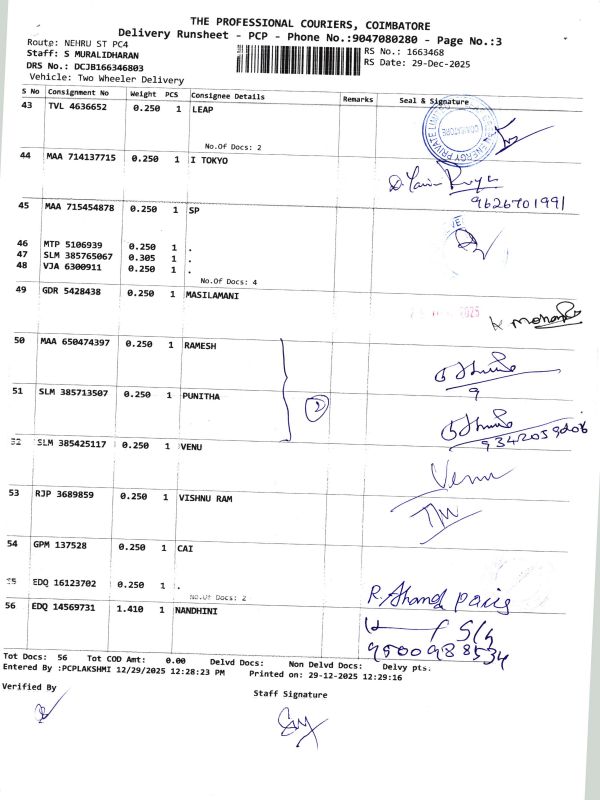 THE PROFESSIONAL COURIERS, COIMBATORE
Delivery Runsheet - PCP - Phone No.:9047080280 - Page No.:3
Route: NEHRU ST PC4
RS No.: 1663468
Staff: S MURALIDHARAN
RS Date: 29-Dec-2025
DRS No.: DCJB166346803
Vehicle: Two Wheeler Delivery
S No Consignment No Weight PCS Consignee Details Remarks Seal & Signature
43 TVL 4636652 0.250 1 LEAP
No.Of Docs: 2
44 MAA 714137715 0.250 1 I TOKYO
9626701991
45 MAA 715454878 0.250 1 SP
46 MTP 5106939 0.250 1 .
47 SLM 385765067 0.305 1 .
48 VJA 6300911 0.250 1 .
No.Of Docs: 4
49 GDR 5428438 0.250 1 MASILAMANI
2025
K mohan
50 MAA 650474397 0.250 1 RAMESH
9
51 SLM 385713507 0.250 1 PUNITHA
2
52 SLM 385425117 0.250 1 VENU
Venu
53 RJP 3689859 0.250 1 VISHNU RAM
54 GPM 137528 0.250 1 CAI
55 EDQ 16123702 0.250 1 .
No.Of Docs: 2
56 EDQ 14569731 1.410 1 NANDHINI
9500988534
Tot Docs: 56 Tot COD Amt: 0.00 Delvd Docs: Non Delvd Docs: Delvy pts.
Entered By :PCPLAKSHMI 12/29/2025 12:28:23 PM Printed on: 29-12-2025 12:29:16
Verified By
Staff Signature